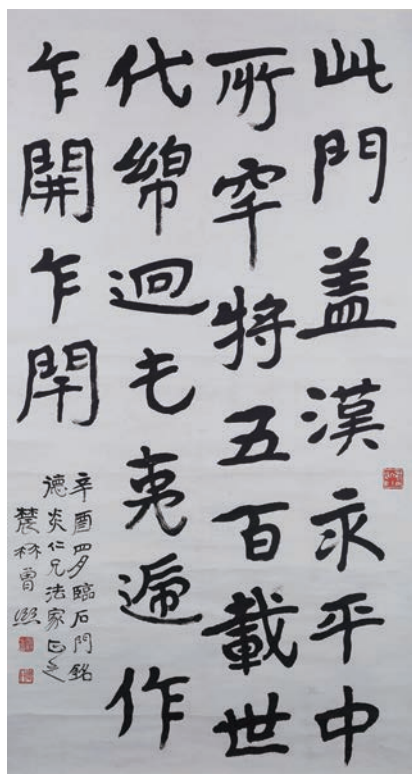 此門盖漢永平中
所穿將五百載世
代綿迴屯夷遞作
乍開乍閇
辛酉四月臨石門銘
德炎仁兄法家正之
農髯曾熙